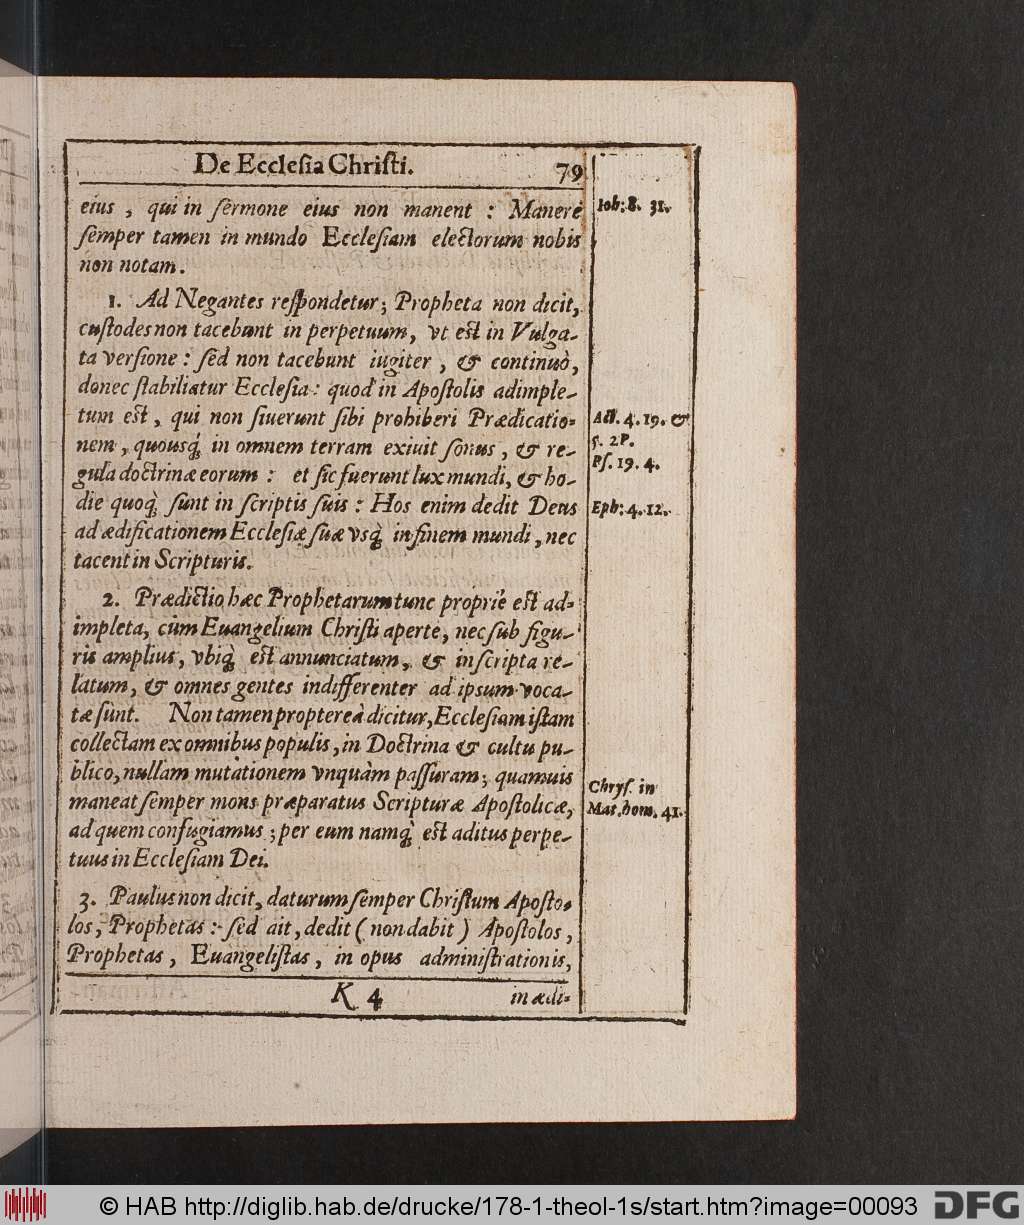 De Ecclesia Christi. 79
eius, qui in sermone eius non manent : Manere
semper tamen in mundo Ecclesiam electorum nobis
non notam.
Ioh: 8. 31.
1. Ad Negantes respondetur; Propheta non dicit,
custodes non tacebunt in perpetuum, vt est in Vulga-
ta versione : sed non tacebunt iugiter, & continuò,
donec stabiliatur Ecclesia: quod in Apostolis adimple-
tum est, qui non siuerunt sibi prohiberi Prædicatio-
nem, quousq́; in omnem terram exiuit sonus, & re-
gula doctrinæ eorum : et sic fuerunt lux mundi, & ho-
die quoq́; sunt in scriptis suis : Hos enim dedit Deus
ad ædificationem Ecclesiæ suæ vsq́; in finem mundi, nec
tacent in Scripturis.
Act. 4. 19. &
5. 29.
Ps. 19. 4.
Eph: 4. 12.
2. Prædictio hæc Prophetarum tunc proprie est ad-
impleta, cùm Euangelium Christi aperte, nec sub figu-
ris amplius, vbiq́; est annunciatum, & in scripta re-
latum, & omnes gentes indifferenter ad ipsum voca-
tæ sunt. Non tamen proptereà dicitur, Ecclesiam istam
collectam ex omnibus populis, in Doctrina & cultu pu-
blico, nullam mutationem vnquàm passuram; quamuis
maneat semper mons præparatus Scripturæ Apostolicæ,
ad quem confugiamus ; per eum namq́; est aditus perpe-
tuus in Ecclesiam Dei.
Chrys. in
Mat. hom. 41.
3. Paulus non dicit, daturum semper Christum Aposto-
los, Prophetas : sed ait, dedit ( non dabit ) Apostolos,
Prophetas, Euangelistas, in opus administrationis,
K 4 in ædi-
© HAB http://diglib.hab.de/drucke/178-1-theol-1s/start.htm?image=00093 DFG